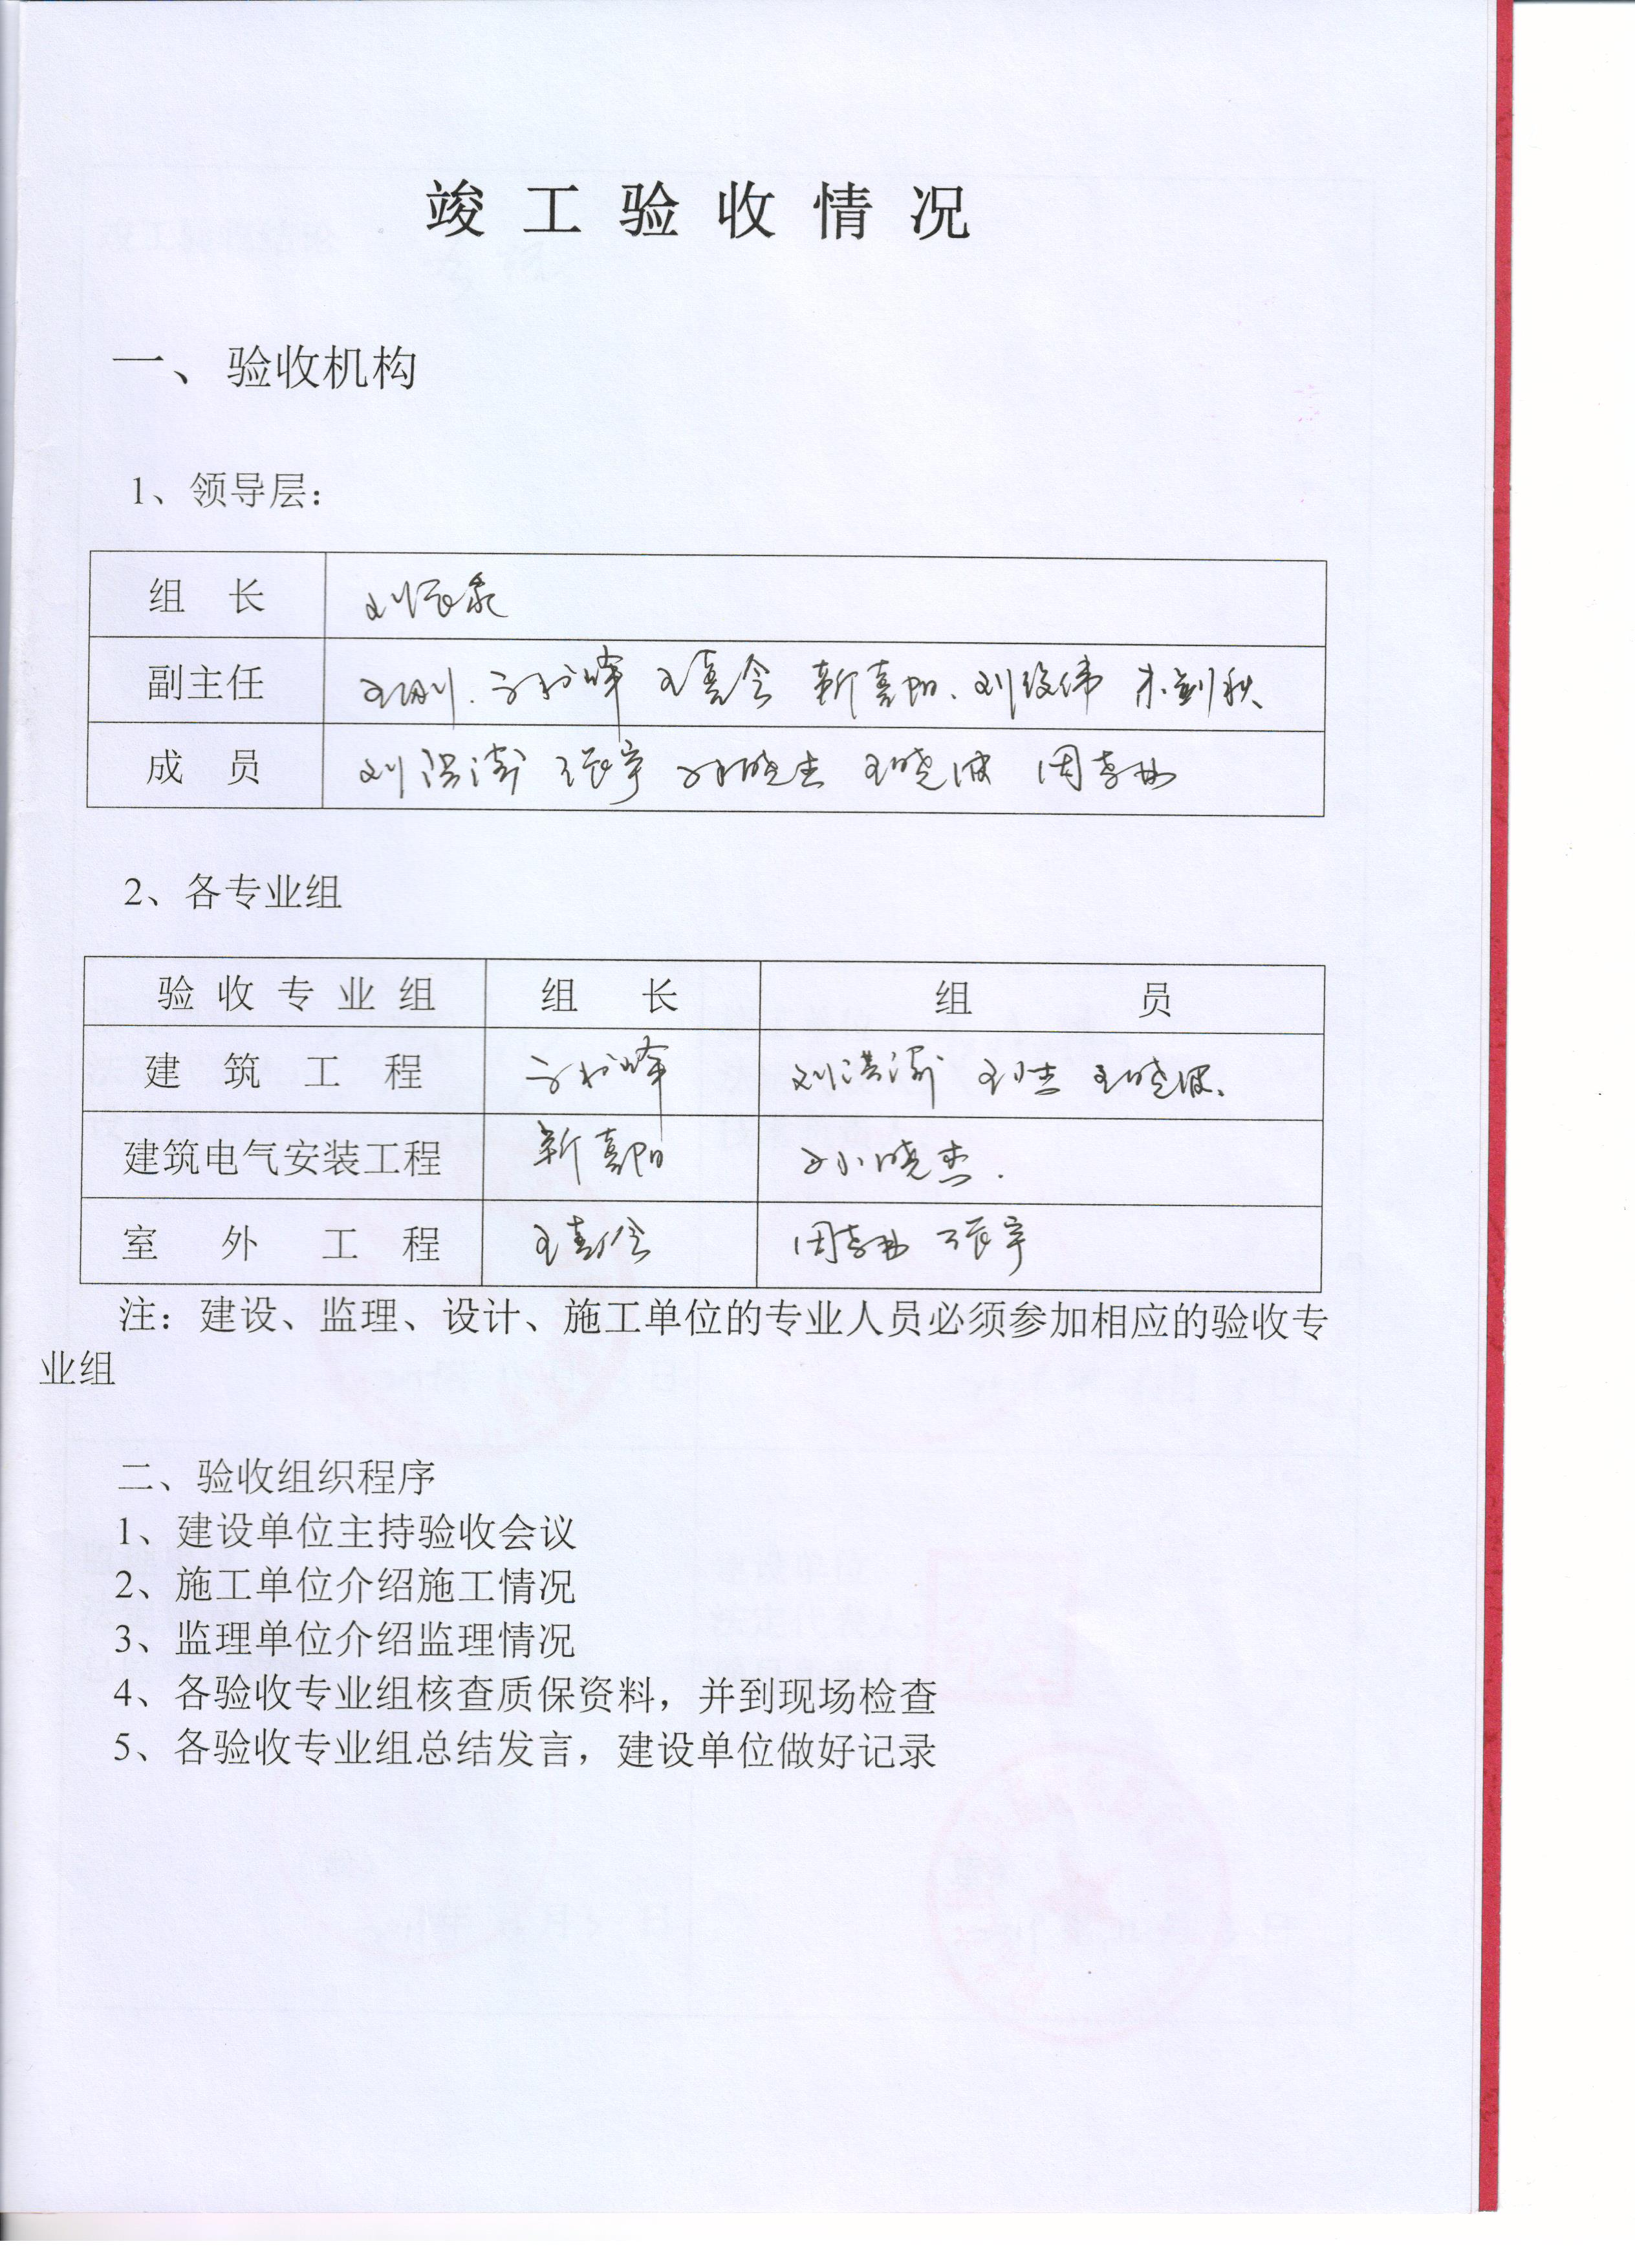 竣工验收情况
一、验收机构
1、领导层：
组 长 刘
副主任 王刚. 王喜会 刘 伟
成 员 刘洪澎 张宇 孙晓杰 王晓波 周
2、各专业组
验收专业组 组 长 组 员
建 筑 工 程 刘洪澎 王晓波
建筑电气安装工程 孙晓杰.
室 外 工 程 王喜会 周 张宇
注：建设、监理、设计、施工单位的专业人员必须参加相应的验收专
业组
二、验收组织程序
1、建设单位主持验收会议
2、施工单位介绍施工情况
3、监理单位介绍监理情况
4、各验收专业组核查质保资料，并到现场检查
5、各验收专业组总结发言，建设单位做好记录